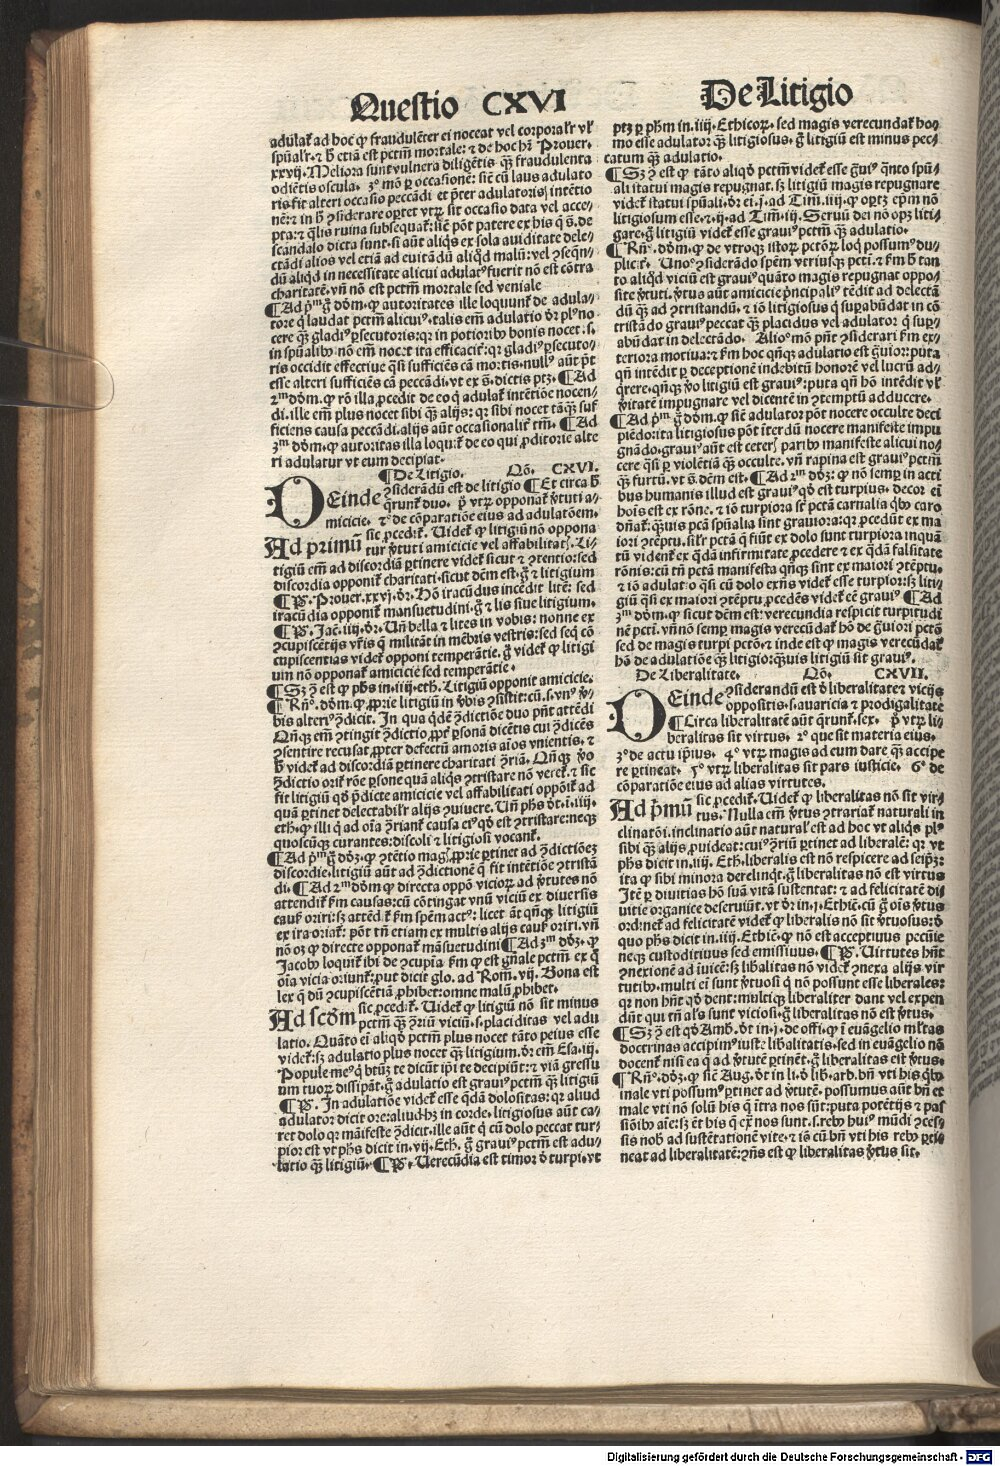 Questio CXVI
De Litigio
adulat̃ ad hoc ꝙ fraudulēter ei noceat vel corporalr̃ vl̓
spũalr̃. ⁊ b̄ etiā est pctm̄ mortale: ⁊ de hoc hr̄ Prouer.
xxvij. Meliora sunt vulnera diligētis q̄ꝫ fraudulenta
odiētis oscula. 3º mō ꝑ occasionē: sic̄ cū laus adulato
ris fit alteri occasio peccādi et p̄ter adulatoris intētio
nē: ⁊ in b̄ ꝯsiderare oꝑtet vtꝝ sit occasio data vel acce-
pta: ⁊ q̄lis ruina subsequat̃: sic̄ pōt patere ex his q̄ s̄. de
scandalo dicta sunt. si aūt aliq̄s ex sola auiditate dele-
ctādi alios vel etiā ad euitādū aliqd̓ malū: vel ꝯseqn̄-
dū aliqd̓ in necessitate alicui adulat⁹ fuerit nō est cōtra
charitatē. vn̄ nō est pctm̄ mortale sed veniale
¶ Ad pᵐ g̊ dōm. ꝙ autoritates ille loquunt̃ de adula-
tore q̇ laudat pctm̄ alicui⁹. talis em̄ adulatio dr̄ pl⁹ no
cere q̄ꝫ gladi⁹ ꝑsecutoris: qr̄ in potiorib⁹ bonis nocet. s.
in spũalib⁹ nō em̄ nocet ita efficacit̃: qr̄ gladi⁹ ꝑsecuto-
ris occidit effectiue q̄si sufficiēs cā mortis. null⁹ aūt p̄t
esse alteri sufficiēs cā peccādi. vt ex s̄. dictis ptꝫ. ¶ Ad
2ᵐ dōm. ꝙ rō illa ꝓcedit de eo q̇ adulat̃ intētiōe nocen-
di. ille em̄ plus nocet sibi q̄ꝫ alijs: qr̄ sibi nocet tāq̄ꝫ suf
ficiens causa peccādi. alijs aūt occasionalit̃ tm̄. ¶ Ad
3ᵐ dōm. ꝙ autoritas illa loquit̃ de eo qui ꝓditorie alte
ri adulatur vt eum decipiat.
¶ De Litigio. Qō. CXVI.
DEinde ꝯsiderādū est de litigio ¶ Et circa b̄
q̄runt̃ duo. p̊ vtꝝ opponat̃ v̓tuti a-
micicie. 2º de cōparatiōe eius ad adulatōem.
Ad primū sic ꝓcedit̃. Videt̃ ꝙ litigiū nō oppona
tur v̓tuti amicicie vel affabilitatꝭ. Li-
tigiū em̄ ad discordiā ꝑtinere videt̃ sicut ⁊ ꝯtentio: sed
discordia opponit̃ charitati. sicut dc̄m est. g̊ ⁊ litigium
¶ P̄. Prouer. xxvj. dr̄. Hō iracūdus incēdit litē: sed
iracūdia opponit̃ mansuetudini. g̊ ⁊ lis siue litigium.
¶ P̄. Jac̄. iiij. dr̄. Vn̄ bella ⁊ lites in vobis: nonne ex
ꝯcupiscētijs vr̄is q̄ militāt in mēbris vestris: sed seq̇ cō
cupiscentias videt̃ opponi temperātie. g̊ videt̃ ꝙ litigi
um nō opponat̃ amicicie sed temperātie.
¶ Sꝫ ꝯ̄ est ꝙ phs̄ in. iiij. eth. Litigiū opponit amicicie.
¶ Rn̄º. dōm. ꝙ ꝓprie litigiū in v̓bis ꝯsistit: cū. s. vn⁹ v̓-
bis alteri⁹ ꝯdicit. In qua q̇dē ꝯdictiōe duo pn̄t attēdi
Qn̄q̄ꝫ em̄ ꝯtingit ꝯdictio ꝓpt̃ ꝑsonā dicētis cui ꝯdicēs
ꝯsentire recusat ꝓpter defectū amoris aīos vnientis. ⁊
b̄ videt̃ ad discordiā ꝑtinere charitati ꝯriā. Qn̄q̄ꝫ v̊o
ꝯdictio orit̃ rōe ꝑsone quā aliq̄s ꝯtristare nō veret̃. ⁊ sic
fit litigiū qd̓ p̄dicte amicicie vel affabilitati oppōit̃ ad
quā ꝑtinet delectabilr̃ alijs ꝯuiuere. Vn̄ phs̄ dt̄. ī. iiij.
eth. ꝙ illi q̇ ad oīa ꝯriant̃ causa ei⁹ qd̓ est ꝯtristare: neqꝫ
quoscūqꝫ curantes: discoli ⁊ litigiosi vocant̃.
¶ Ad pᵐ g̊ dōꝫ. ꝙ ꝯtētio magꝭ ꝓprie ꝑtinet ad ꝯdictiōeꝫ
discordie. litigiū aūt ad ꝯdictionē q̄ fit intētiōe ꝯtristā
di. ¶ Ad 2ᵐ dōm ꝙ directa oppō vicioꝝ ad v̓tutes nō
attendit̃ ẜm causas: cū cōtingat vnū viciū ex diuersis
caus̃ oriri: sꝫ attēdit̃ ẜm spēm act⁹: licet aūt qn̄qꝫ litigiū
ex ira oriat̃: pōt tn̄ etiam ex multis alijs caus̃ oriri. vn̄
nō oꝫ ꝙ directe opponat̃ māsuetudini ¶ Ad 3ᵐ dōꝫ. ꝙ
Jacob⁹ loquit̃ ibi de ꝯcupīa ẜm ꝙ est gn̄ale pctm̄ ex q̊
oīa vicia oriunt̃: put dicit glo. ad Rom̄. vij. Bona est
lex q̄ dū ꝯcupiscētiā ꝓhibet: omne malū ꝓhibet.
Ad scd̓m sic ꝓcedit̃. Videt̃ ꝙ litigiū nō sit minus
pctm̄ q̄ꝫ ꝯriū viciū. s. placiditas vel adu
latio. Quāto ei aliqd̓ pctm̄ plus nocet tāto peius esse
videt̃: sꝫ adulatio plus nocet q̄ꝫ litigium. dr̄ em̄ Esa. iij.
Popule me⁹ q̇ btūꝫ te dicūt ip̄i te decipiūt: ⁊ viā gressu
um tuoꝝ dissipāt. g̊ adulatio est graui⁹ pctm̄ q̄ꝫ litigiū
¶ P̄. In adulatiōe videt̃ esse q̇dā dolositas: qr̄ aliud
adulator dicit ore: aliud hꝫ in corde. litigiosus aūt ca-
ret dolo qr̄ māifeste ꝯdicit. ille aūt q̇ cū dolo peccat tur-
pior est vt phs̄ dicit in. vij. Eth. g̊ graui⁹ pctm̄ est adu-
latio q̄ꝫ litigiū. ¶ P̄. Verecūdia est timor d̓ turpi. vt
ptꝫ ꝑ phm̄ in. iiij. Ethicoꝝ. sed magis verecundat̃ ho-
mo esse adulator q̄ꝫ litigiosus. g̊ litigiū est minus pec-
catum q̄ꝫ adulatio.
¶ Sꝫ ꝯ̄ est ꝙ tāto aliqd̓ pctm̄ videt̃ esse g̓ui⁹ q̄nto spũ-
ali statui magis repugnat. sꝫ litigiū magis repugnare
videt̃ statui spũali. dr̄ ei. j. ad Tim̄. iij. ꝙ oꝑtꝫ ep̄m nō
litigiosum esse. ⁊. ij. ad Tim̄. ij. Seruū dei nō opꝫ liti-
gare. g̊ litigiū videt̃ esse graui⁹ pctm̄ q̄ꝫ adulatio.
¶ Rn̄º. dōm. ꝙ de vtroqꝫ istoꝝ pctōꝝ loq̇ possum⁹ du-
plicit̃. Unoº ꝯsiderādo spēm vtriusqꝫ pcti. ⁊ ẜm b̄ tan
to aliqd̓ viciū est graui⁹ quāto magis repugnat oppo-
site v̓tuti. v̓tus aūt amicicie p̓ncipali⁹ tēdit ad delectā
dū q̄ꝫ ad ꝯtristandū. ⁊ iō litigiosus q̇ suꝑabūdat in cō
tristādo graui⁹ peccat q̄ꝫ placidus vel adulator q̇ suꝑ-
abūdat in delectādo. Alioº mō pn̄t ꝯsiderari ẜm ex-
teriora motiua: ⁊ ẜm hoc qn̄qꝫ adulatio est g̓uior: puta
qn̄ intēdit ꝑ deceptionē indebitū honorē vel lucrū ad-
q̇rere. qn̄qꝫ v̊o litigiū est graui⁹: puta qn̄ hō intēdit vl̓
v̓itatē impugnare vel dicentē in ꝯtemptū adducere.
¶ Ad pᵐ g̊ dōm. ꝙ sic̄ adulator pōt nocere occulte deci
piēdo: ita litigiosus pōt īterdū nocere manifeste impu
gnādo. graui⁹ aūt est ceterꝭ parib⁹ manifeste alicui no-
cere q̄si ꝑ violētiā q̄ꝫ occulte. vn̄ rapina est graui⁹ pctm̄
q̄ꝫ furtū. vt s̄. dc̄m est. ¶ Ad 2ᵐ dōꝫ: ꝙ nō semꝑ in acti
bus humanis illud est graui⁹ qd̓ est turpius. decor ei
hoīs est ex rōne. ⁊ iō turpiora sūt pctā carnalia q̇b⁹ caro
dn̄at̃: q̄uis pctā spũalia sint grauiora: qr̄ ꝓcedūt ex ma
iori ꝯtēptu. silr̃ pctā q̄ fiūt ex dolo sunt turpiora inquā
tū vident̃ ex q̇dā infirmitate ꝓcedere ⁊ ex q̇dā falsitate
rōnis: cū tn̄ pctā manifesta qn̄qꝫ sint ex maiori ꝯtēptu.
⁊ iō adulatio q̄si cū dolo exn̄s videt̃ esse turpior: sꝫ liti-
giū q̄si ex maiori ꝯtēptu ꝓcedēs videt̃ eē graui⁹ ¶ Ad
3ᵐ dōm. ꝙ sicut dc̄m est: verecundia respicit turpitudi
nē pcti. vn̄ nō semꝑ magis verecūdat̃ hō de g̓uiori pctō
sed de magis turpi pctō. ⁊ inde est ꝙ magis verecūdat̃
hō de adulatiōe q̄ꝫ litigio: q̄uis litigiū sit graui⁹.
De Liberalitate. Qō. CXVII.
DEinde ꝯsiderandū est d̓ liberalitate ⁊ vicijs
oppositis. s. auaricia ⁊ prodigalitate
¶ Circa liberalitatē aūt q̄runt̃. sex. p̊ vtꝝ li-
beralitas sit virtus. 2º que sit materia eius.
3º de actu ip̄ius. 4º vtꝝ magis ad eum dare q̄ꝫ accipe
re ꝑtineat. 5º vtꝝ liberalitas sit pars iusticie. 6º de
cōparatiōe eius ad alias virtutes.
Ad p̓mū sic ꝓcedit̃. Videt̃ ꝙ liberalitas nō sit vir-
tus. Nulla em̄ v̓tus ꝯtrariat̃ naturali in
clinatōi. inclinatio aūt natural̓ est ad hoc vt aliq̄s pl⁹
sibi q̄ꝫ alijs ꝓuideat: cui⁹ ꝯriū ꝑtinet ad liberalē: qr̄ vt
phs̄ dicit in. iiij. Eth. liberalis est nō respicere ad seip̄ꝫ:
ita ꝙ sibi minora derelinq̇t. g̊ liberalitas nō est virtus
Itē ꝑ diuitias hō suā vitā sustentat: ⁊ ad felicitatē di-
uitie organice deseruiūt. vt dr̄ in. j. Ethic̄. cū g̊ oīs v̓tus
ordinet̃ ad felicitatē videt̃ ꝙ liberalis nō sit v̓tuosus: d̓
quo phs̄ dicit in. iiij. Ethic̄. ꝙ nō est acceptiuus pecūie
neqꝫ custoditiuus sed emissiuus. ¶ P̄. Virtutes hn̄t
ꝯnexionē ad iuicē: sꝫ libālitas nō videt̃ ꝯnexa alijs vir
tutib⁹. multi ei sunt v̓tuosi q̇ nō possunt esse liberales:
qr̄ non hn̄t qd̓ dent: multiqꝫ liberaliter dant vel expen
dūt qui tn̄ al̓s sunt viciosi. g̊ liberalitas nō est v̓tus.
¶ Sꝫ ꝯ̄ est qd̓ Amb̄. dt̄ in. j. de offi. ꝙ ī euāgelio mltas
doctrinas accipim⁹ iuste lib̓alitatis. sed in euāgelio nō
docent̃ nisi ea q̄ ad v̓tutē ꝑtinēt. g̊ liberalitas est v̓tus.
¶ Rn̄º. dōꝫ. ꝙ sic̄ Aug. dt̄ in li. d̓ lib̓. arb. bn̄ vti his q̇b⁹
male vti possum⁹ ꝑtinet ad v̓tutē. possumus aūt bn̄ et
male vti nō solū his q̄ ītra nos sūt: puta potētijs ⁊ pas
siōib⁹ aīe: sꝫ ēt his q̄ ex̄ nos sunt. s. reb⁹ hui⁹ mūdi ꝯces-
sis nob̄ ad sustētationē vite. ⁊ iō cū bn̄ vti his reb⁹ ꝑti-
neat ad liberalitatē: ꝯn̄s est ꝙ liberalitas v̓tus sit.
Digitalisierung gefördert durch die Deutsche Forschungsgemeinschaft - DFG